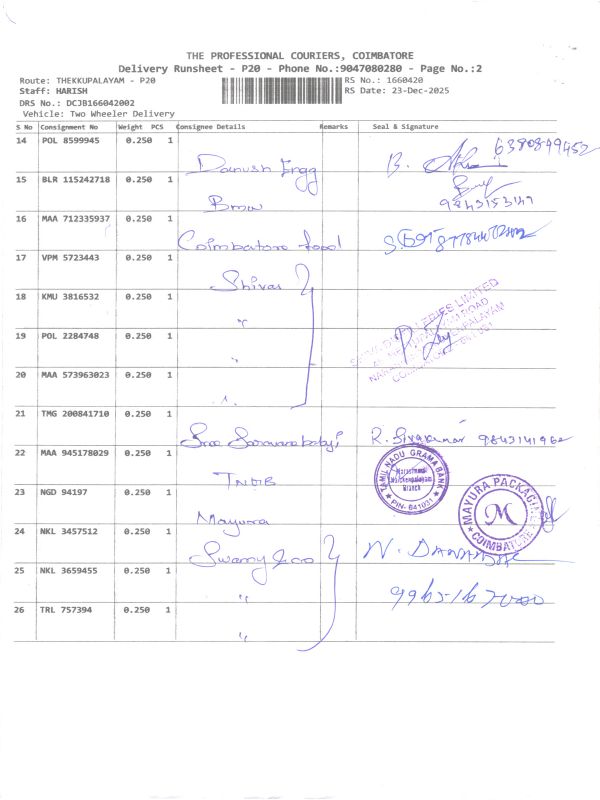 THE PROFESSIONAL COURIERS, COIMBATORE
Delivery Runsheet - P20 - Phone No.:9047080280 - Page No.:2
Route: THEKKUPALAYAM - P20 RS No.: 1660420
Staff: HARISH RS Date: 23-Dec-2025
DRS No.: DCJB166042002
Vehicle: Two Wheeler Delivery
S No Consignment No Weight PCS Consignee Details Remarks Seal & Signature
14 POL 8599945 0.250 1 Danush Engg B. 6380849452
15 BLR 115242718 0.250 1
16 MAA 712335937 0.250 1 Coimbatore food
17 VPM 5723443 0.250 1 Shivas
18 KMU 3816532 0.250 1 "
19 POL 2284748 0.250 1 "
20 MAA 573963023 0.250 1 "
21 TMG 200841710 0.250 1 R. Sivakumar 9843141962
22 MAA 945178029 0.250 1 TAMIL NADU GRAMA BANK Branch PIN- 641031
23 NGD 94197 0.250 1 Mayura MAYURA PACKAGING M COIMBATORE
24 NKL 3457512 0.250 1 Swamy
25 NKL 3659455 0.250 1 "
26 TRL 757394 0.250 1 "